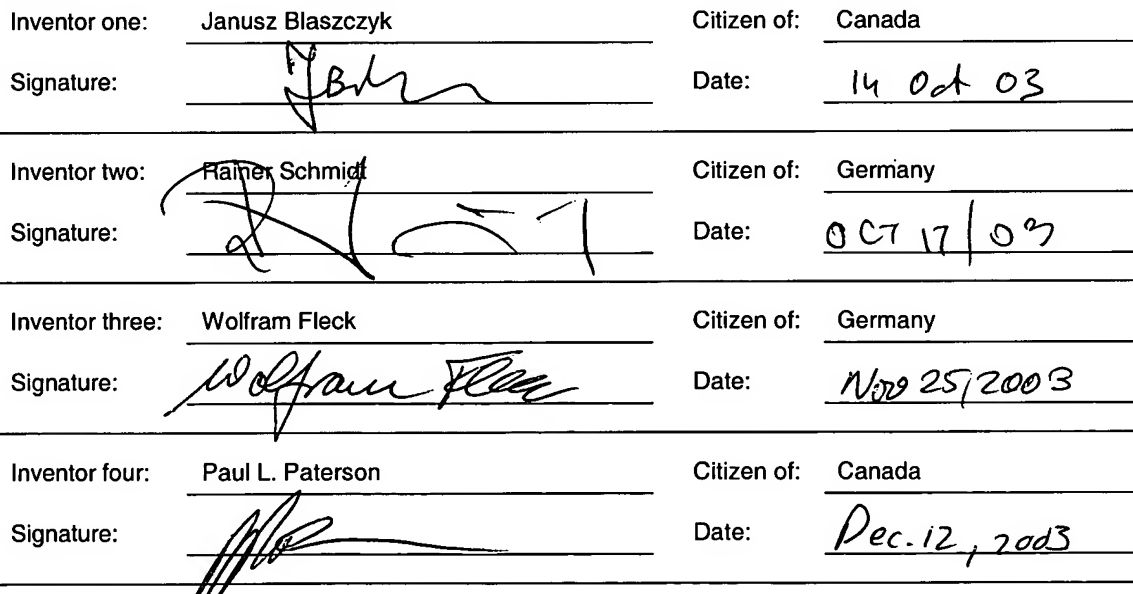 Inventor one: Janusz Blaszczyk Citizen of: Canada
Signature: Date: 14 Oct 03
Inventor two: Rainer Schmidt Citizen of: Germany
Signature: Date: OCT 17/03
Inventor three: Wolfram Fleck Citizen of: Germany
Signature: Wolfram Fleck Date: Nov 25, 2003
Inventor four: Paul L. Paterson Citizen of: Canada
Signature: Date: Dec. 12, 2003